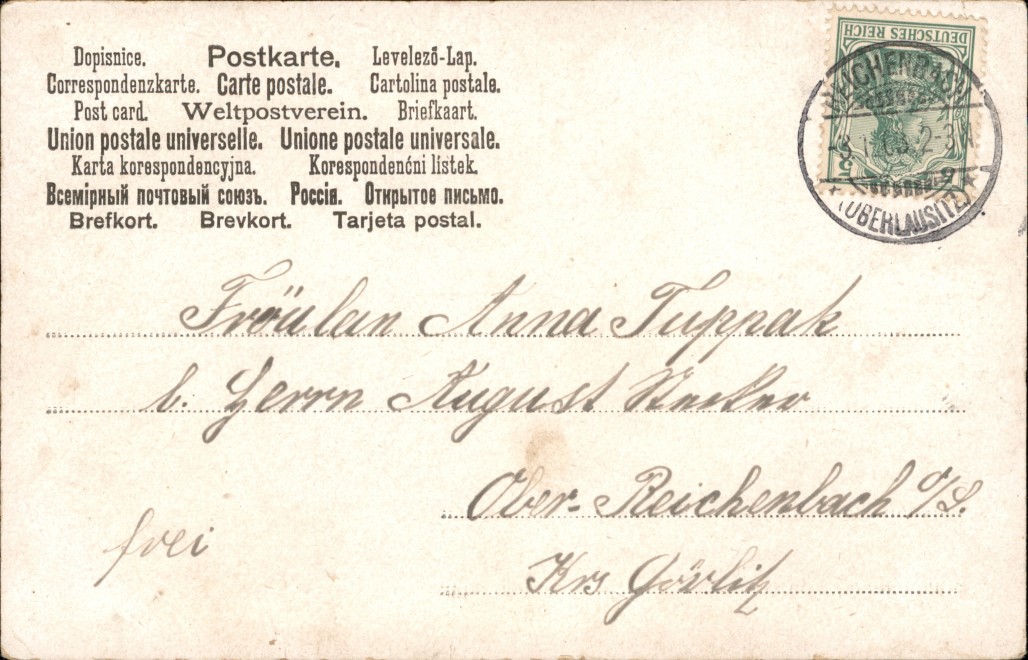 Dopisnice. Postkarte. Levelező-Lap.
Correspondenzkarte. Carte postale. Cartolina postale.
Post card. Weltpostverein. Briefkaart.
Union postale universelle. Unione postale universale.
Karta korespondencyjna. Korespondenčni listek.
Всемірный почтовый союзъ. Россія. Открытое письмо.
Brefkort. Brevkort. Tarjeta postal.
DEUTSCHES REICH
REICHENBACH
2-3 N
(OBERLAUSITZ)
Fräulan Anna Tuppak
b. Herrn August
Ober-Reichenbach O/L.
frei
Krs Görlitz